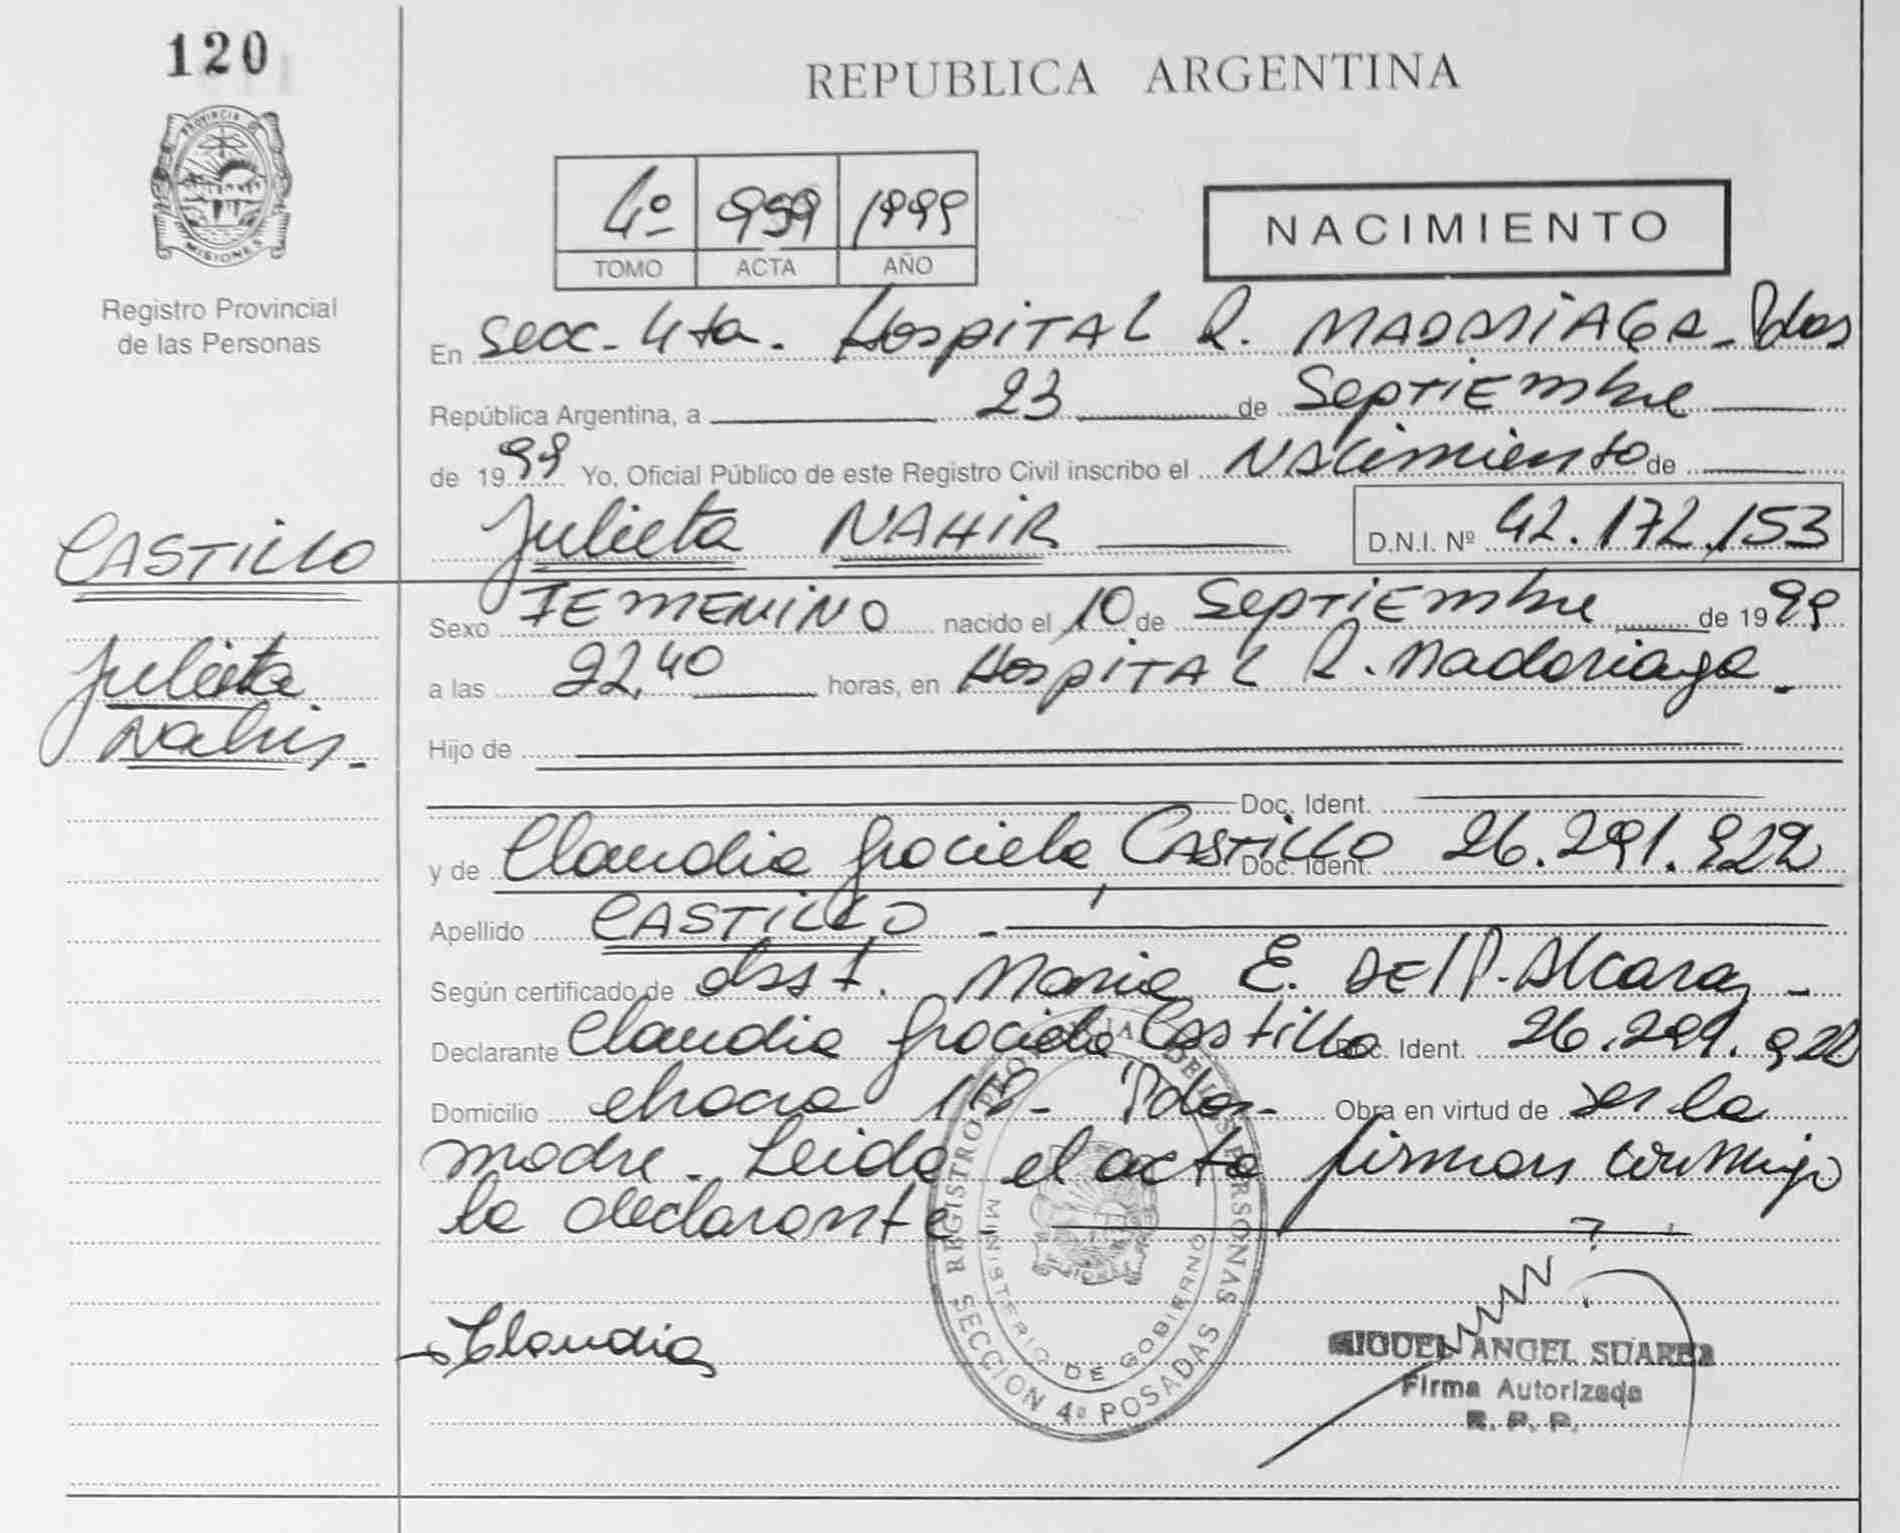 120
REPUBLICA ARGENTINA
PROVINCIA DE MISIONES
Registro Provincial
de las Personas
4º 959 1999
TOMO ACTA AÑO
NACIMIENTO
En Secc. 4ta. Hospital R. MADARIAGA - Pdas
República Argentina, a 23 de Septiembre
de 1999 Yo, Oficial Público de este Registro Civil inscribo el Nacimiento de
Julieta NAHIR D.N.I. Nº 42.172.153
CASTILLO
Julieta
Nahir.-
Sexo FEMENINO nacido el 10 de Septiembre de 1999
a las 22,40 horas, en Hospital R. Madariaga.
Hijo de
Doc. Ident.
y de Claudia Graciela, CASTILLO Doc. Ident. 26.291.922
Apellido CASTILLO -
Según certificado de obst. Maria E. DEL P. Alcaraz -
Declarante Claudia Graciela Castillo Doc. Ident. 26.291.922
Domicilio chacra 112 - Pdas - Obra en virtud de ser la
madre. Leida el acta firman conmigo
la declarante
REGISTRO PROVINCIAL DE LAS PERSONAS
MINISTERIO DE GOBIERNO
SECCION 4ª POSADAS
Claudia
MIGUEL ANGEL SUAREZ
Firma Autorizada
R. P. P.